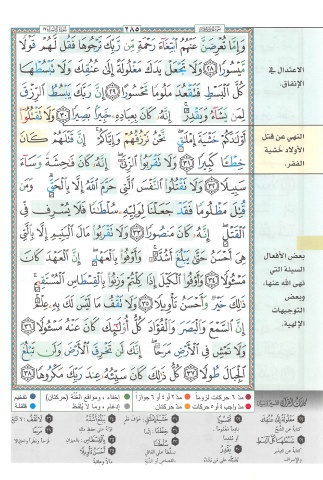 ٢٨٥
وَإِمَّا تُعْرِضَنَّ عَنْهُمُ ٱبْتِغَآءَ رَحْمَةٍ مِّن رَّبِّكَ تَرْجُوهَا فَقُل لَّهُمْ قَوْلًا
مَّيْسُورًا ٢٨ وَلَا تَجْعَلْ يَدَكَ مَغْلُولَةً إِلَىٰ عُنُقِكَ وَلَا تَبْسُطْهَا
كُلَّ ٱلْبَسْطِ فَتَقْعُدَ مَلُومًا مَّحْسُورًا ٢٩ إِنَّ رَبَّكَ يَبْسُطُ ٱلرِّزْقَ
لِمَن يَشَآءُ وَيَقْدِرُ إِنَّهُۥ كَانَ بِعِبَادِهِۦ خَبِيرًۢا بَصِيرًا ٣٠ وَلَا تَقْتُلُوٓا۟
أَوْلَٰدَكُمْ خَشْيَةَ إِمْلَٰقٍ نَّحْنُ نَرْزُقُهُمْ وَإِيَّاكُمْ إِنَّ قَتْلَهُمْ كَانَ
خِطْـًٔا كَبِيرًا ٣١ وَلَا تَقْرَبُوا۟ ٱلزِّنَىٰٓ إِنَّهُۥ كَانَ فَٰحِشَةً وَسَآءَ
سَبِيلًا ٣٢ وَلَا تَقْتُلُوا۟ ٱلنَّفْسَ ٱلَّتِى حَرَّمَ ٱللَّهُ إِلَّا بِٱلْحَقِّ وَمَن
قُتِلَ مَظْلُومًا فَقَدْ جَعَلْنَا لِوَلِيِّهِۦ سُلْطَٰنًا فَلَا يُسْرِف فِّى
ٱلْقَتْلِ إِنَّهُۥ كَانَ مَنصُورًا ٣٣ وَلَا تَقْرَبُوا۟ مَالَ ٱلْيَتِيمِ إِلَّا بِٱلَّتِى
هِىَ أَحْسَنُ حَتَّىٰ يَبْلُغَ أَشُدَّهُۥ وَأَوْفُوا۟ بِٱلْعَهْدِ إِنَّ ٱلْعَهْدَ كَانَ
مَسْـُٔولًا ٣٤ وَأَوْفُوا۟ ٱلْكَيْلَ إِذَا كِلْتُمْ وَزِنُوا۟ بِٱلْقِسْطَاسِ ٱلْمُسْتَقِيمِ
ذَٰلِكَ خَيْرٌ وَأَحْسَنُ تَأْوِيلًا ٣٥ وَلَا تَقْفُ مَا لَيْسَ لَكَ بِهِۦ عِلْمٌ
إِنَّ ٱلسَّمْعَ وَٱلْبَصَرَ وَٱلْفُؤَادَ كُلُّ أُو۟لَٰٓئِكَ كَانَ عَنْهُ مَسْـُٔولًا ٣٦
وَلَا تَمْشِ فِى ٱلْأَرْضِ مَرَحًا إِنَّكَ لَن تَخْرِقَ ٱلْأَرْضَ وَلَن تَبْلُغَ
ٱلْجِبَالَ طُولًا ٣٧ كُلُّ ذَٰلِكَ كَانَ سَيِّئُهُۥ عِندَ رَبِّكَ مَكْرُوهًا ٣٨
الاعتدال في
الإنفاق.
النهي عن قتل
الأولاد خشية
الفقر.
بعض الأفعال
السيئة التي
نهى الله عنها،
وبعض
التوجيهات
الإلهية.
مدّ ٦ حركات لزوماً
مدّ ٢ أو ٤ أو ٦ جوازاً
إخفاء، ومواقع الغُنَّة (حركتان)
تفخيم
مدّ واجب ٤ أو ٥ حركات
مدّ حركتان
إدغام، وما لا يُلفظ
قلقلة